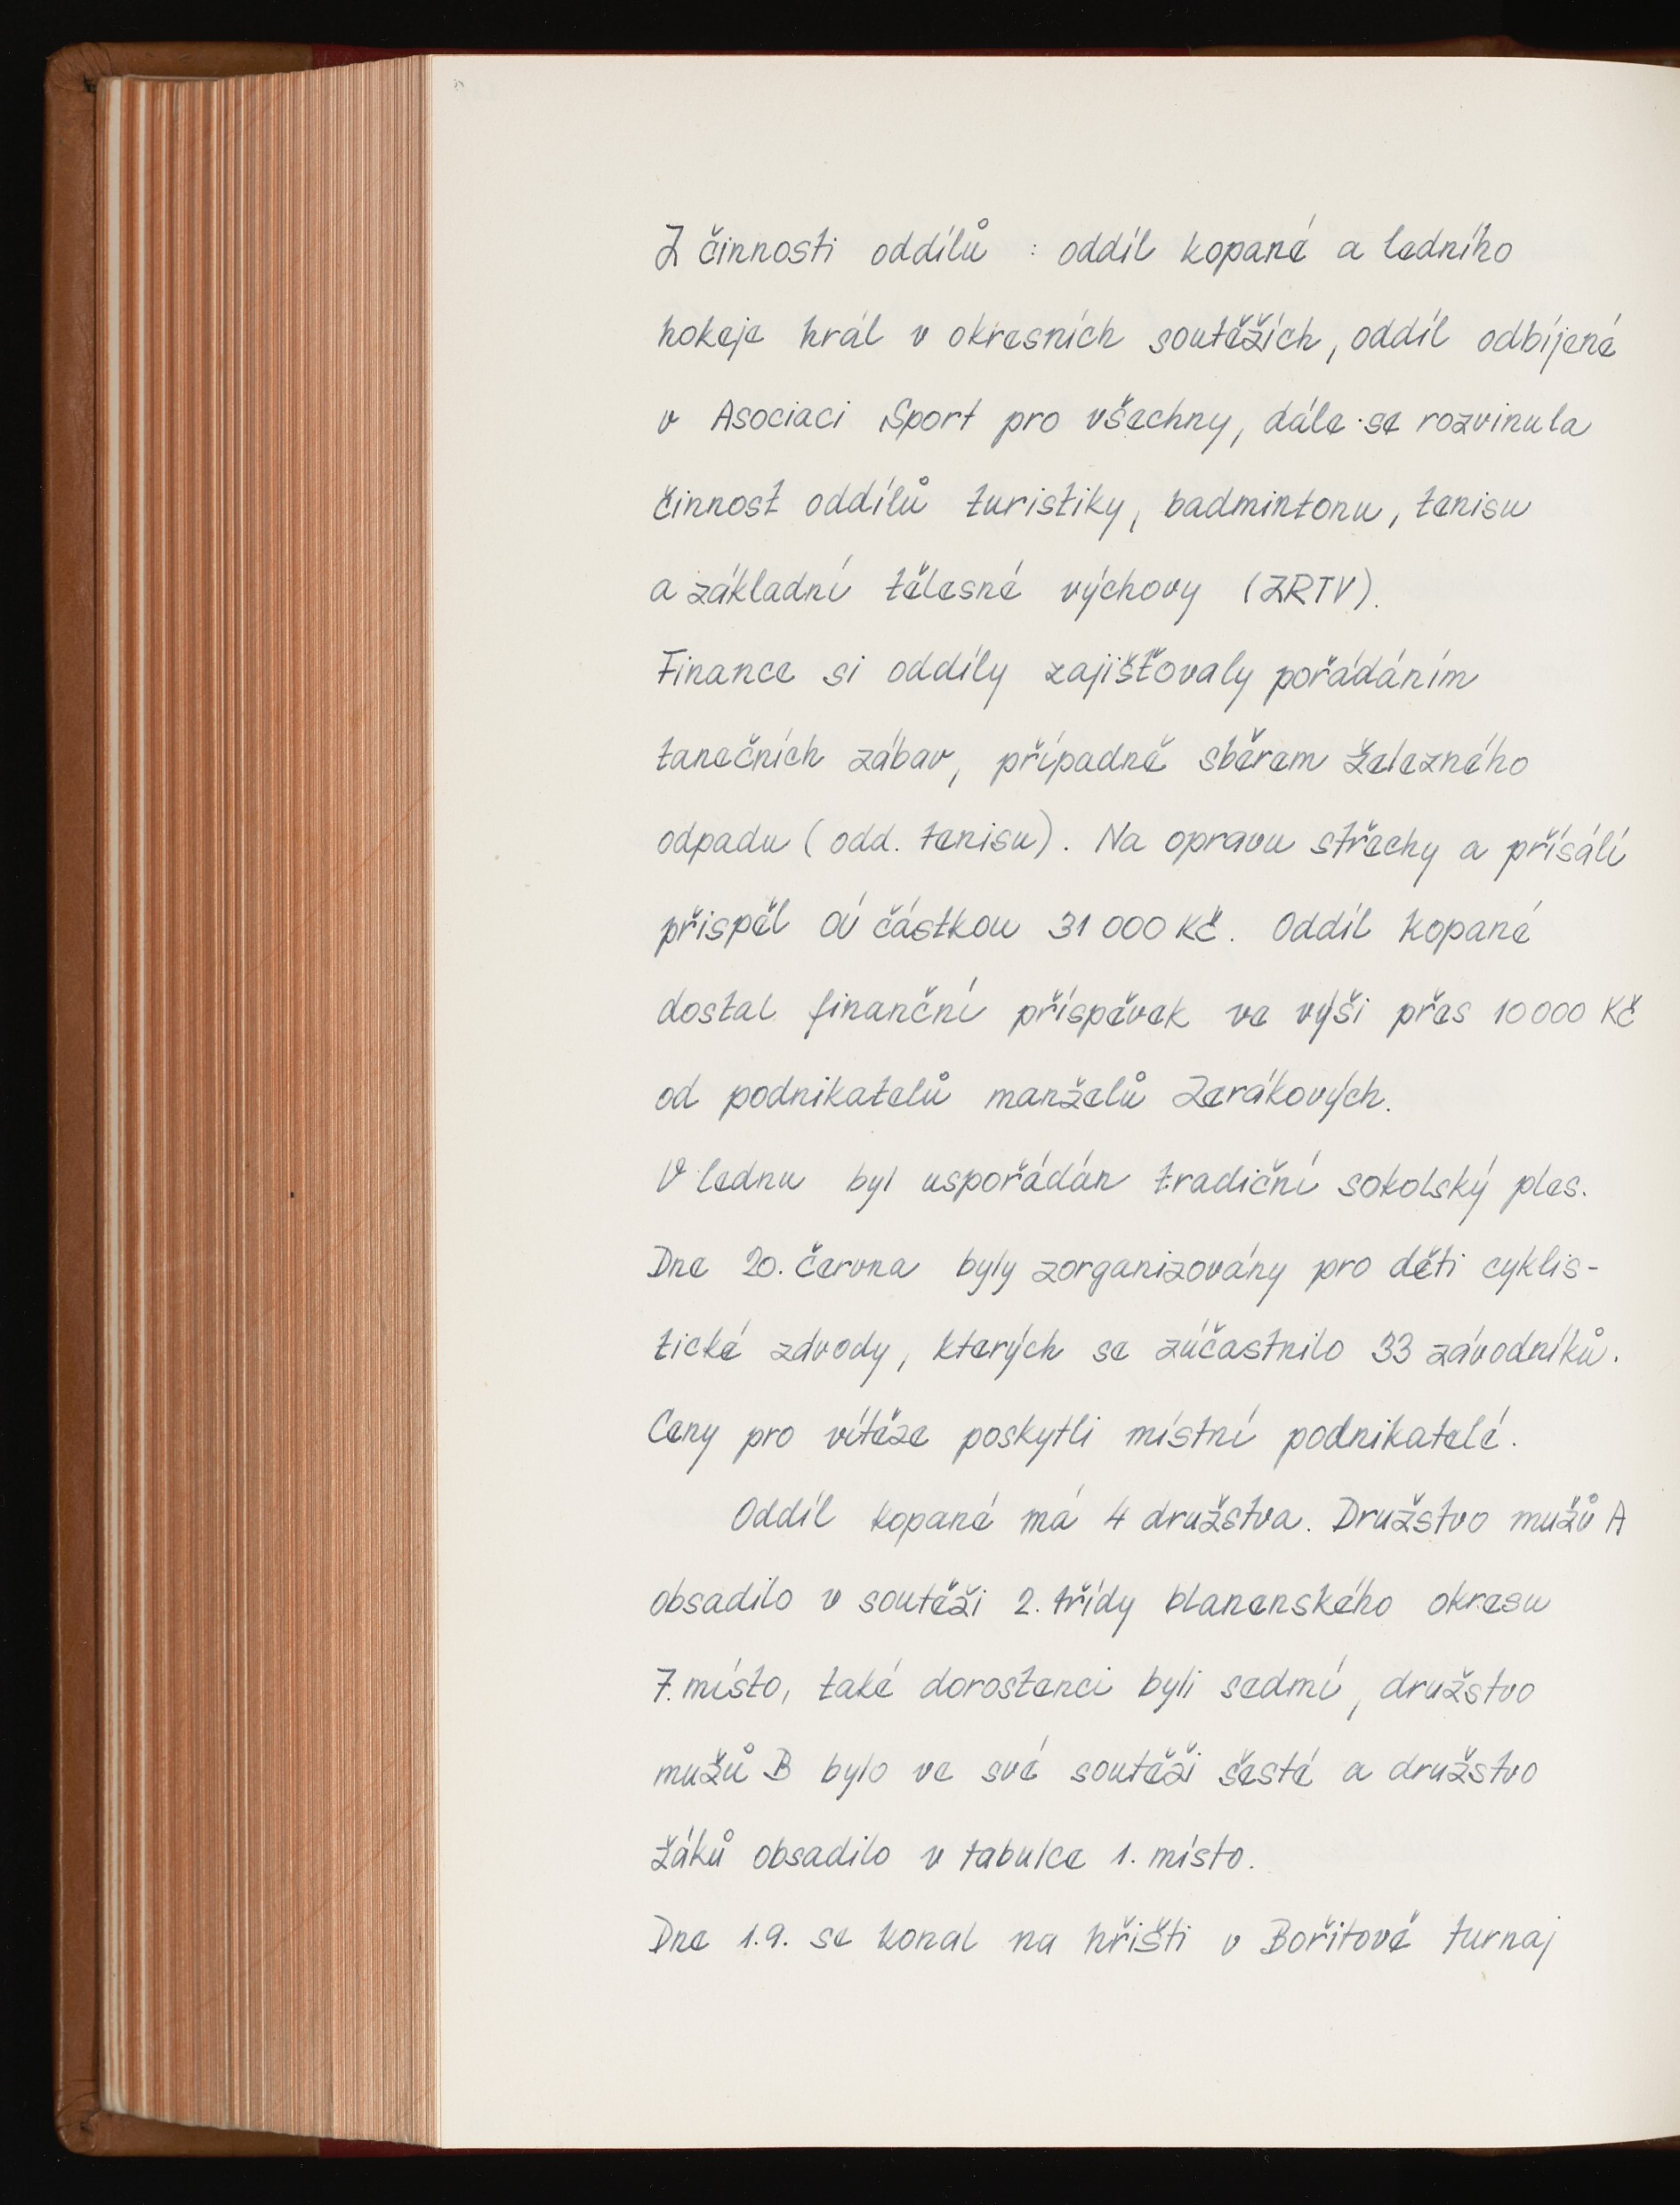 Z činnosti oddílů : oddíl kopané a ledního
hokeje hrál v okresních soutěžích, oddíl odbíjené
v Asociaci Sport pro všechny, dále se rozvinula
činnost oddílů turistiky, badmintonu, tenisu
a základní tělesné výchovy (ZRTV).
Finance si oddíly zajišťovaly pořádáním
tanečních zábav, případně sběrem železného
odpadu (odd. tenisu). Na opravu střechy a přísálí
přispěl OÚ částkou 31 000 Kč. Oddíl kopané
dostal finanční příspěvek ve výši přes 10 000 Kč
od podnikatelů manželů Zerákových.
V lednu byl uspořádán tradiční sokolský ples.
Dne 20. června byly zorganizovány pro děti cyklis-
tické závody, kterých se zúčastnilo 33 závodníků.
Ceny pro vítěze poskytli místní podnikatelé.
Oddíl kopané má 4 družstva. Družstvo mužů A
obsadilo v soutěži 2. třídy blanenského okresu
7. místo, také dorostenci byli sedmí, družstvo
mužů B bylo ve své soutěži šesté a družstvo
žáků obsadilo v tabulce 1. místo.
Dne 1.9. se konal na hřišti v Bořitově turnaj